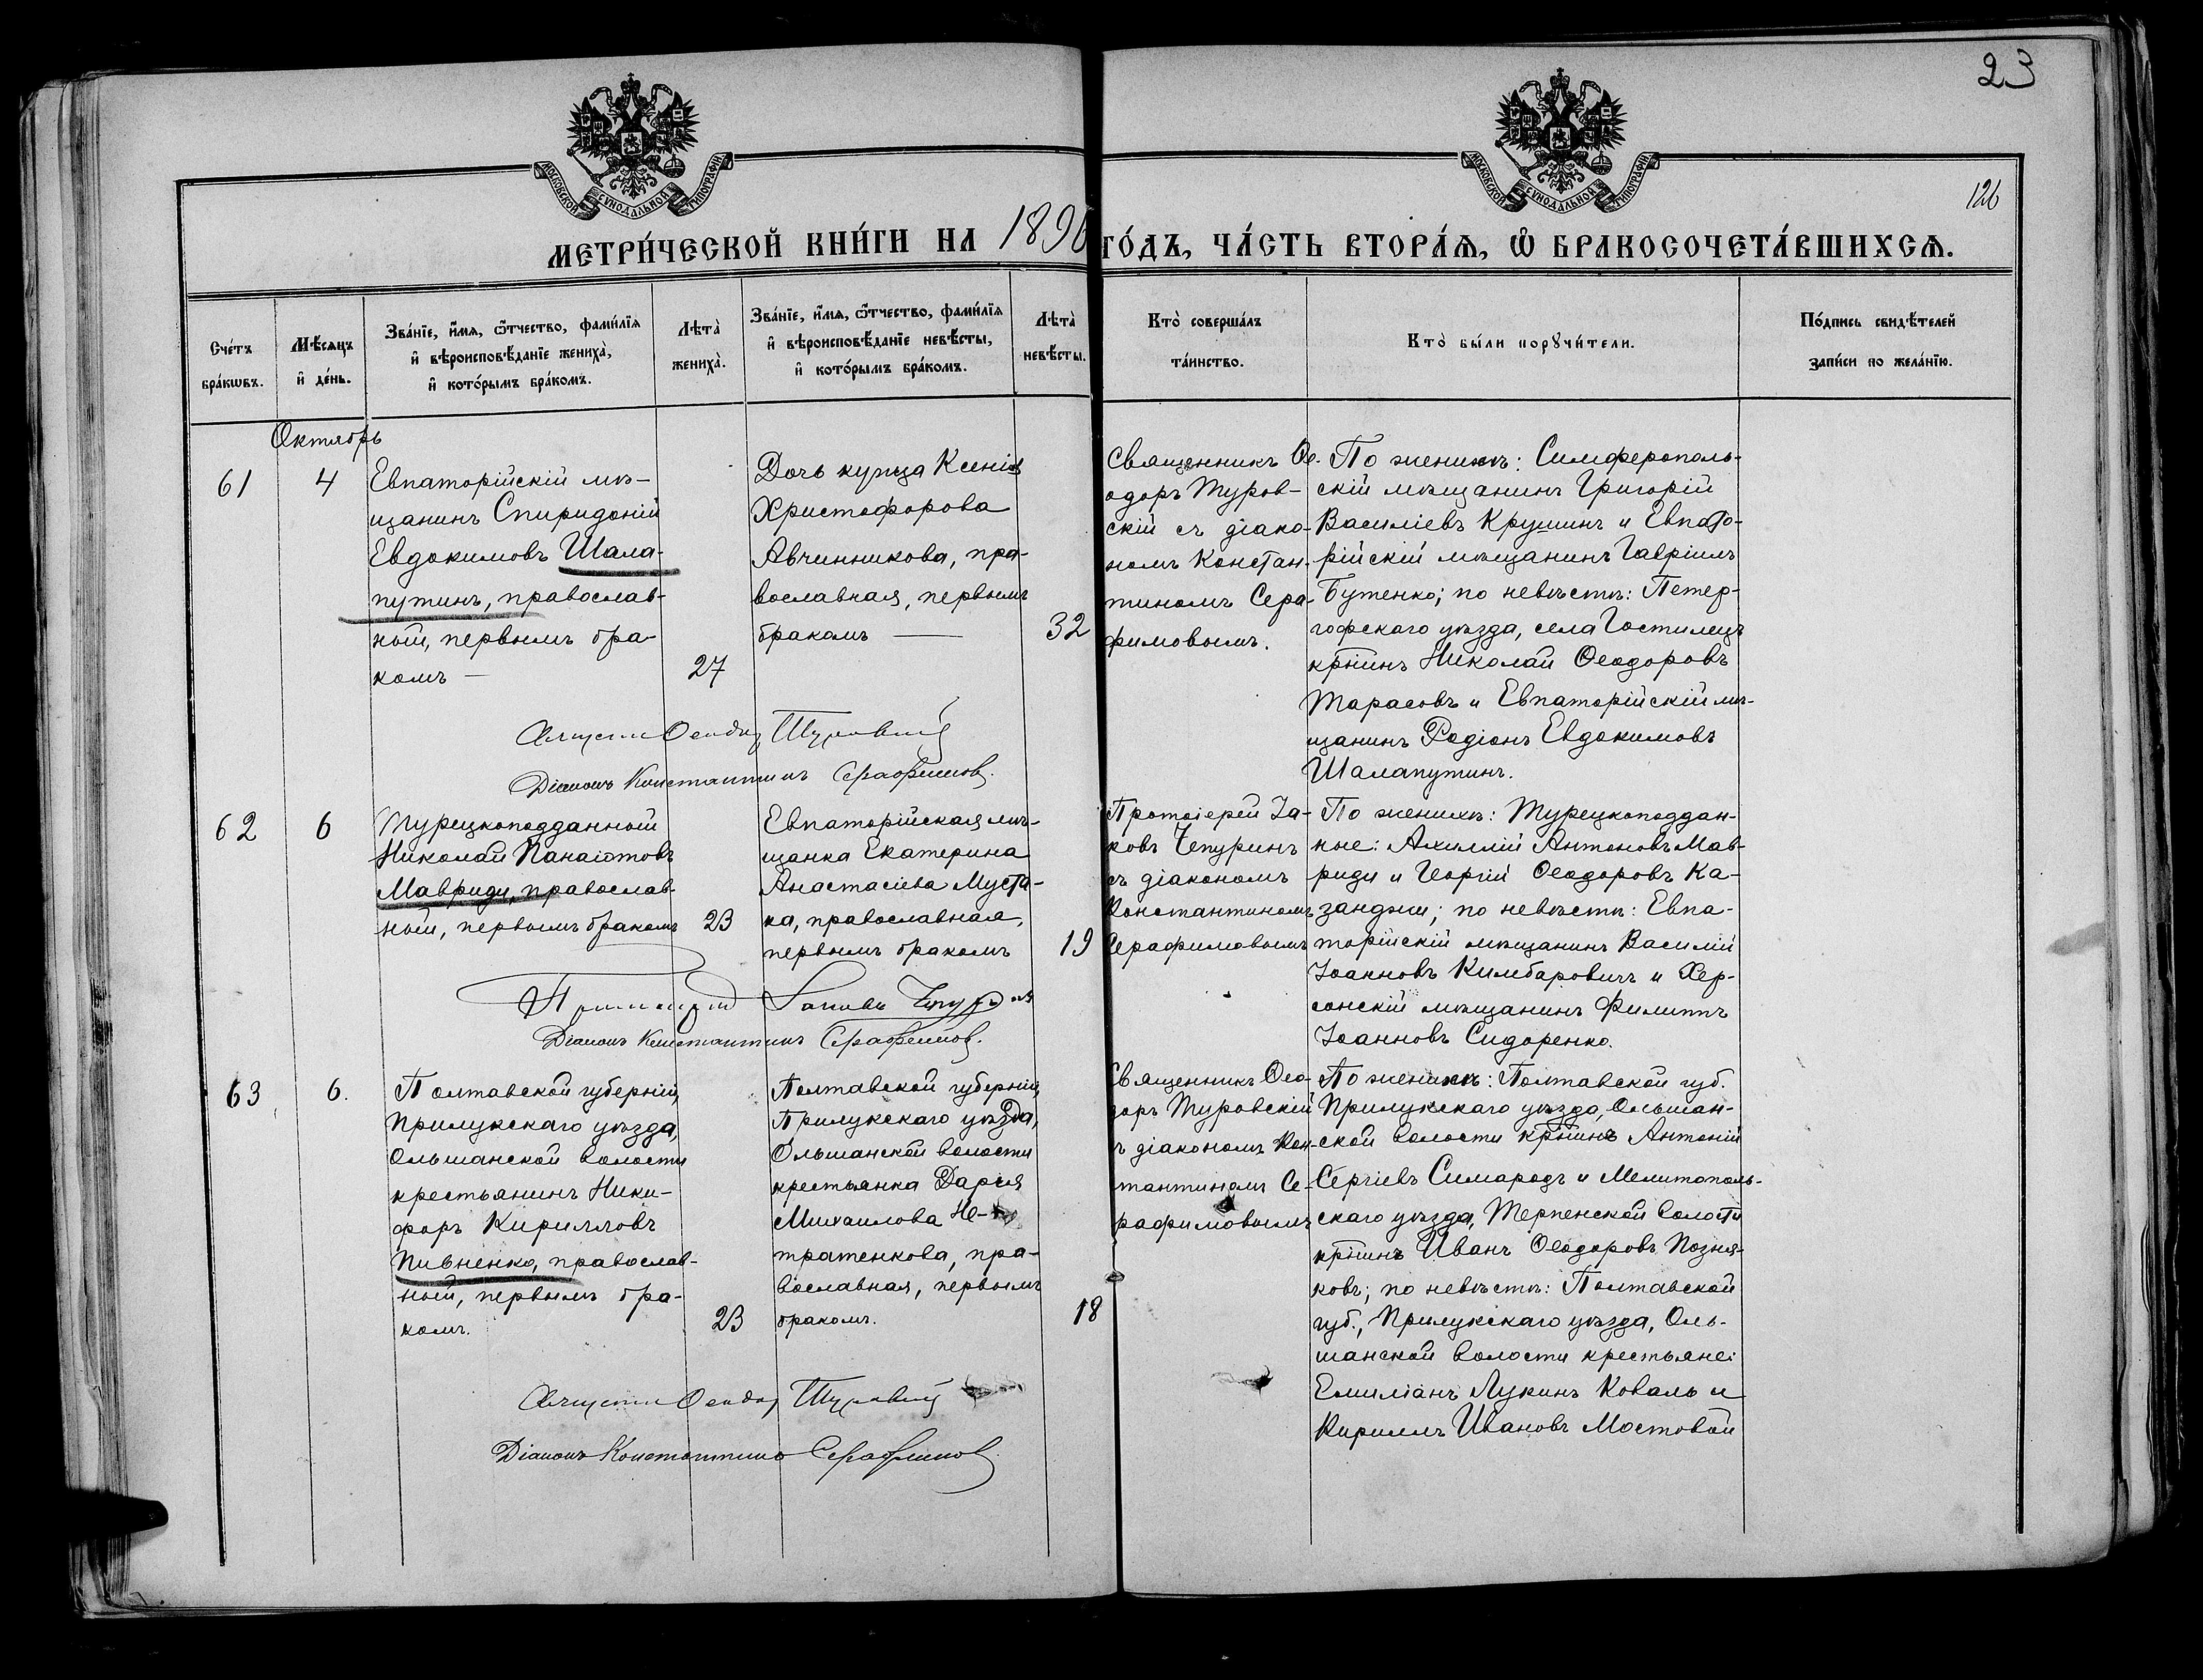 23
126
МОСКОВСКОЙ СѴНОДАЛЬНОЙ ТИПОГРАФІИ
МОСКОВСКОЙ СѴНОДАЛЬНОЙ ТИПОГРАФІИ
МЕТРИ́ЧЕСКОЙ КНИ́ГИ НА 1896 ГО́ДЪ, ЧА́СТЬ ВТОРА́Ѧ, Ѿ БРАКОСОЧЕТА́ВШИХСѦ.
Сче́тъ
бра́кѡвъ.
Мѣ́сѧцъ
и҆ де́нь.
Зва́нїе, и҆́мѧ, ѻ҆́тчество, фами́лїѧ
и҆ вѣроисповѣ́данїе жениха̀,
и҆ кото́рымъ бра́комъ.
Лѣта̀
жениха̀.
Зва́нїе, и҆́мѧ, ѻ҆́тчество, фами́лїѧ
и҆ вѣроисповѣ́данїе невѣ́сты,
и҆ кото́рымъ бра́комъ.
Лѣта̀
невѣ́сты.
Кто̀ соверша́лъ
та́инство.
Кто̀ бы́ли порꙋчи́тели.
По́дпись свидѣ́телей
за́писи по жела́нїю.
Октябрь
61
4
Евпаторійскій мѣ-
щанинъ Спиридоній
Евдокимовъ Шала-
путинъ, православ-
ный, первымъ бра-
комъ —
27
Дочь купца Ксенія
Христофорова
Авчинникова, пра-
вославная, первымъ
бракомъ —
32
Священникъ Ѳе-
одоръ Туров-
скій съ діако-
номъ Констан-
тиномъ Сера-
фимовымъ.
По женихѣ: Симферополь-
скій мѣщанинъ Григорій
Василіевъ Крушинъ и Евпато-
рійскій мѣщанинъ Гавріилъ
Бутенко; по невѣстѣ: Петер-
гофскаго уѣзда, села Гостилецъ
кр̃нинъ Николай Ѳеодоровъ
Тарасовъ и Евпаторійскій мѣ-
щанинъ Родіонъ Евдокимовъ
Шалапутинъ.
Ѳеодоръ Туровскій
Діаконъ Константинъ Серафимовъ.
62
6
Турецкоподданный
Николай Панаіотовъ
Мавриди, православ-
ный, первымъ бракомъ
23
Евпаторійская мѣ-
щанка Екатерина
Анастасіева Муста-
ка, православная,
первымъ бракомъ
19
Протоіерей Іа-
ковъ Чепуринъ
съ діакономъ
Константиномъ
Серафимовымъ
По женихѣ: Турецкоподдан-
ные: Ахиллій Антоновъ Мав-
риди и Георгій Ѳеодоровъ Ка-
занджи; по невѣстѣ: Евпа-
торійскій мѣщанинъ Василій
Іоанновъ Кимбаровичъ и Хер-
сонскій мѣщанинъ Филиппъ
Іоанновъ Сидоренко.
Протоіерей Іаковъ Чепуринъ
Діаконъ Константинъ Серафимовъ.
63
6.
Полтавской губерніи,
Прилукскаго уѣзда,
Ольшанской волости
крестьянинъ Ники-
форъ Кирилловъ
Пивненко, православ-
ный, первымъ бра-
комъ.
23
Полтавской губерніи,
Прилукскаго уѣзда,
Ольшанской волости
крестьянка Дарія
Михаилова Не-
тратенкова, пра-
вославная, первымъ
бракомъ.
18
Священникъ Ѳео-
доръ Туровскій
съ діакономъ Кон-
стантиномъ Се-
рафимовымъ
По женихѣ: Полтавской губ.
Прилукскаго уѣзда, Ольшан-
ской волости кр̃нинъ Антоній
Сергіевъ Симародъ и Мелитополь-
скаго уѣзда, Терпенской волости
кр̃нинъ Иванъ Ѳеодоровъ Позня-
ковъ; по невѣстѣ: Полтавской
губ., Прилукскаго уѣзда, Оль-
шанской волости крестьяне:
Емиліанъ Лукинъ Коваль и
Кириллъ Ивановъ Мостовой
Ѳеодоръ Туровскій
Діаконъ Константинъ Серафимовъ